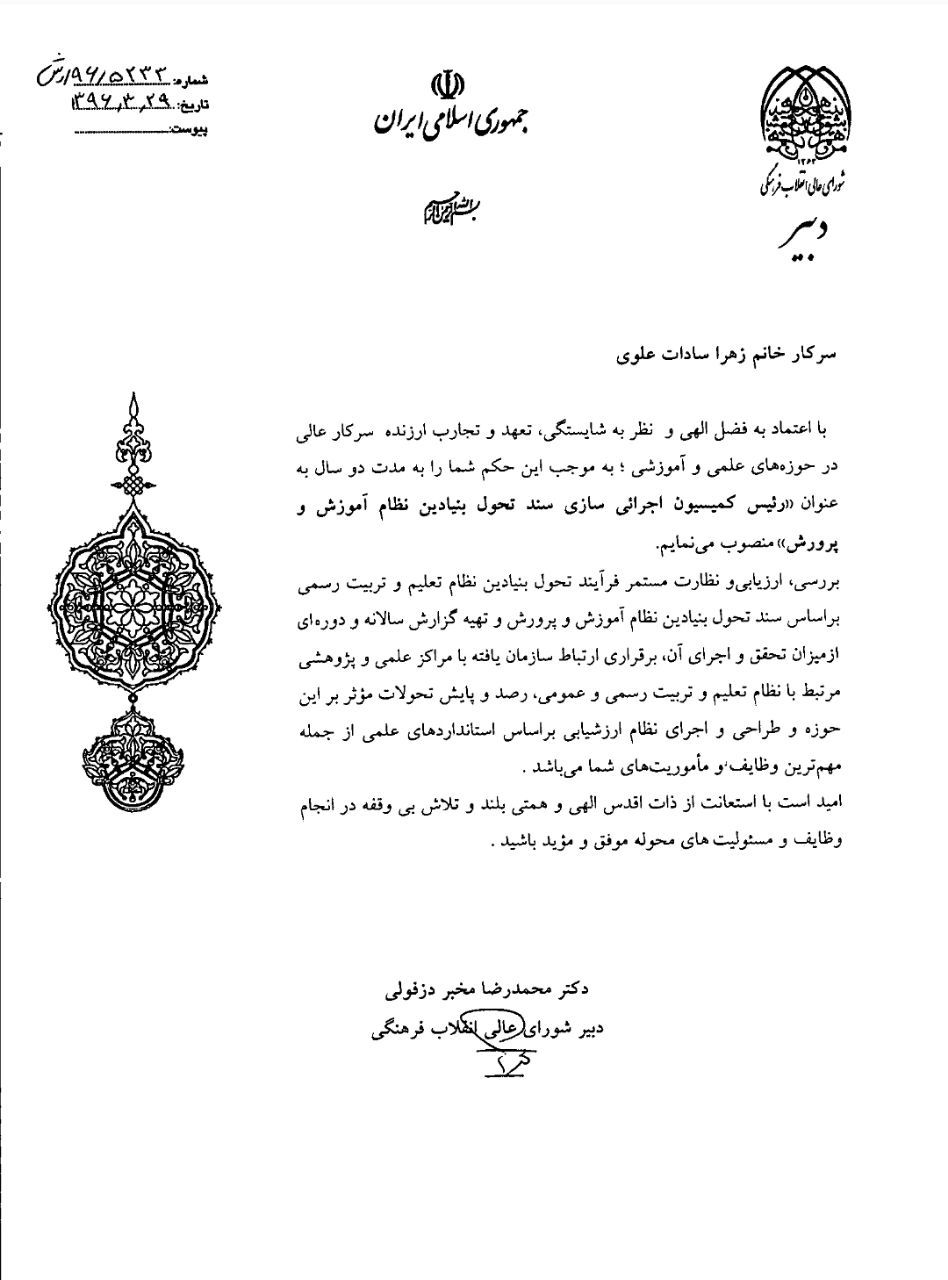 شماره: ۹۶/۵۲۳۳/دش
تاریخ: ۱۳۹۶,۳,۲۹
پیوست:
جمهوری اسلامی ایران
بسم الله الرحمن الرحیم
۱۳۶۳
شورای عالی انقلاب فرهنگی
دبیر
سرکار خانم زهرا سادات علوی
با اعتماد به فضل الهی و نظر به شایستگی، تعهد و تجارب ارزنده سرکار عالی
در حوزه‌های علمی و آموزشی ؛ به موجب این حکم شما را به مدت دو سال به
عنوان «رئیس کمیسیون اجرائی سازی سند تحول بنیادین نظام آموزش و
پرورش» منصوب می‌نمایم.
بررسی، ارزیابی‌و نظارت مستمر فرآیند تحول بنیادین نظام تعلیم و تربیت رسمی
براساس سند تحول بنیادین نظام آموزش و پرورش و تهیه گزارش سالانه و دوره‌ای
ازمیزان تحقق و اجرای آن، برقراری ارتباط سازمان یافته با مراکز علمی و پژوهشی
مرتبط با نظام تعلیم و تربیت رسمی و عمومی، رصد و پایش تحولات مؤثر بر این
حوزه و طراحی و اجرای نظام ارزشیابی براساس استانداردهای علمی از جمله
مهم‌ترین وظایف و مأموریت‌های شما می‌باشد .
امید است با استعانت از ذات اقدس الهی و همتی بلند و تلاش بی وقفه در انجام
وظایف و مسئولیت های محوله موفق و مؤید باشید .
دکتر محمدرضا مخبر دزفولی
دبیر شورای عالی انقلاب فرهنگی